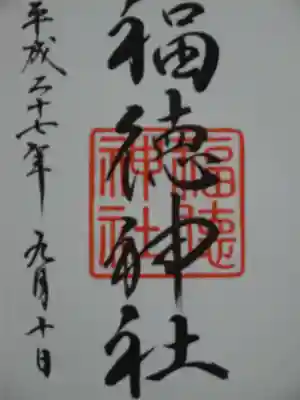 福徳神社
福徳
神社
平成二十七年 九月十日